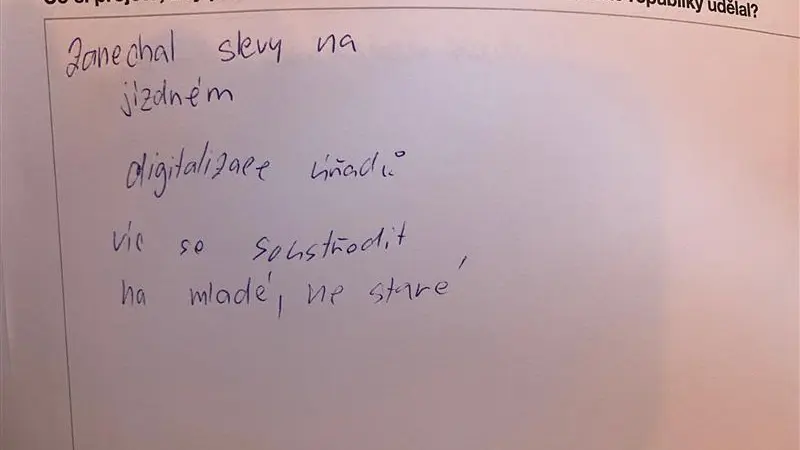 republiky udělal?
Zanechal slevy na
jízdném
digitalizace úřadů
víc se soustředit
na mladé, ne staré